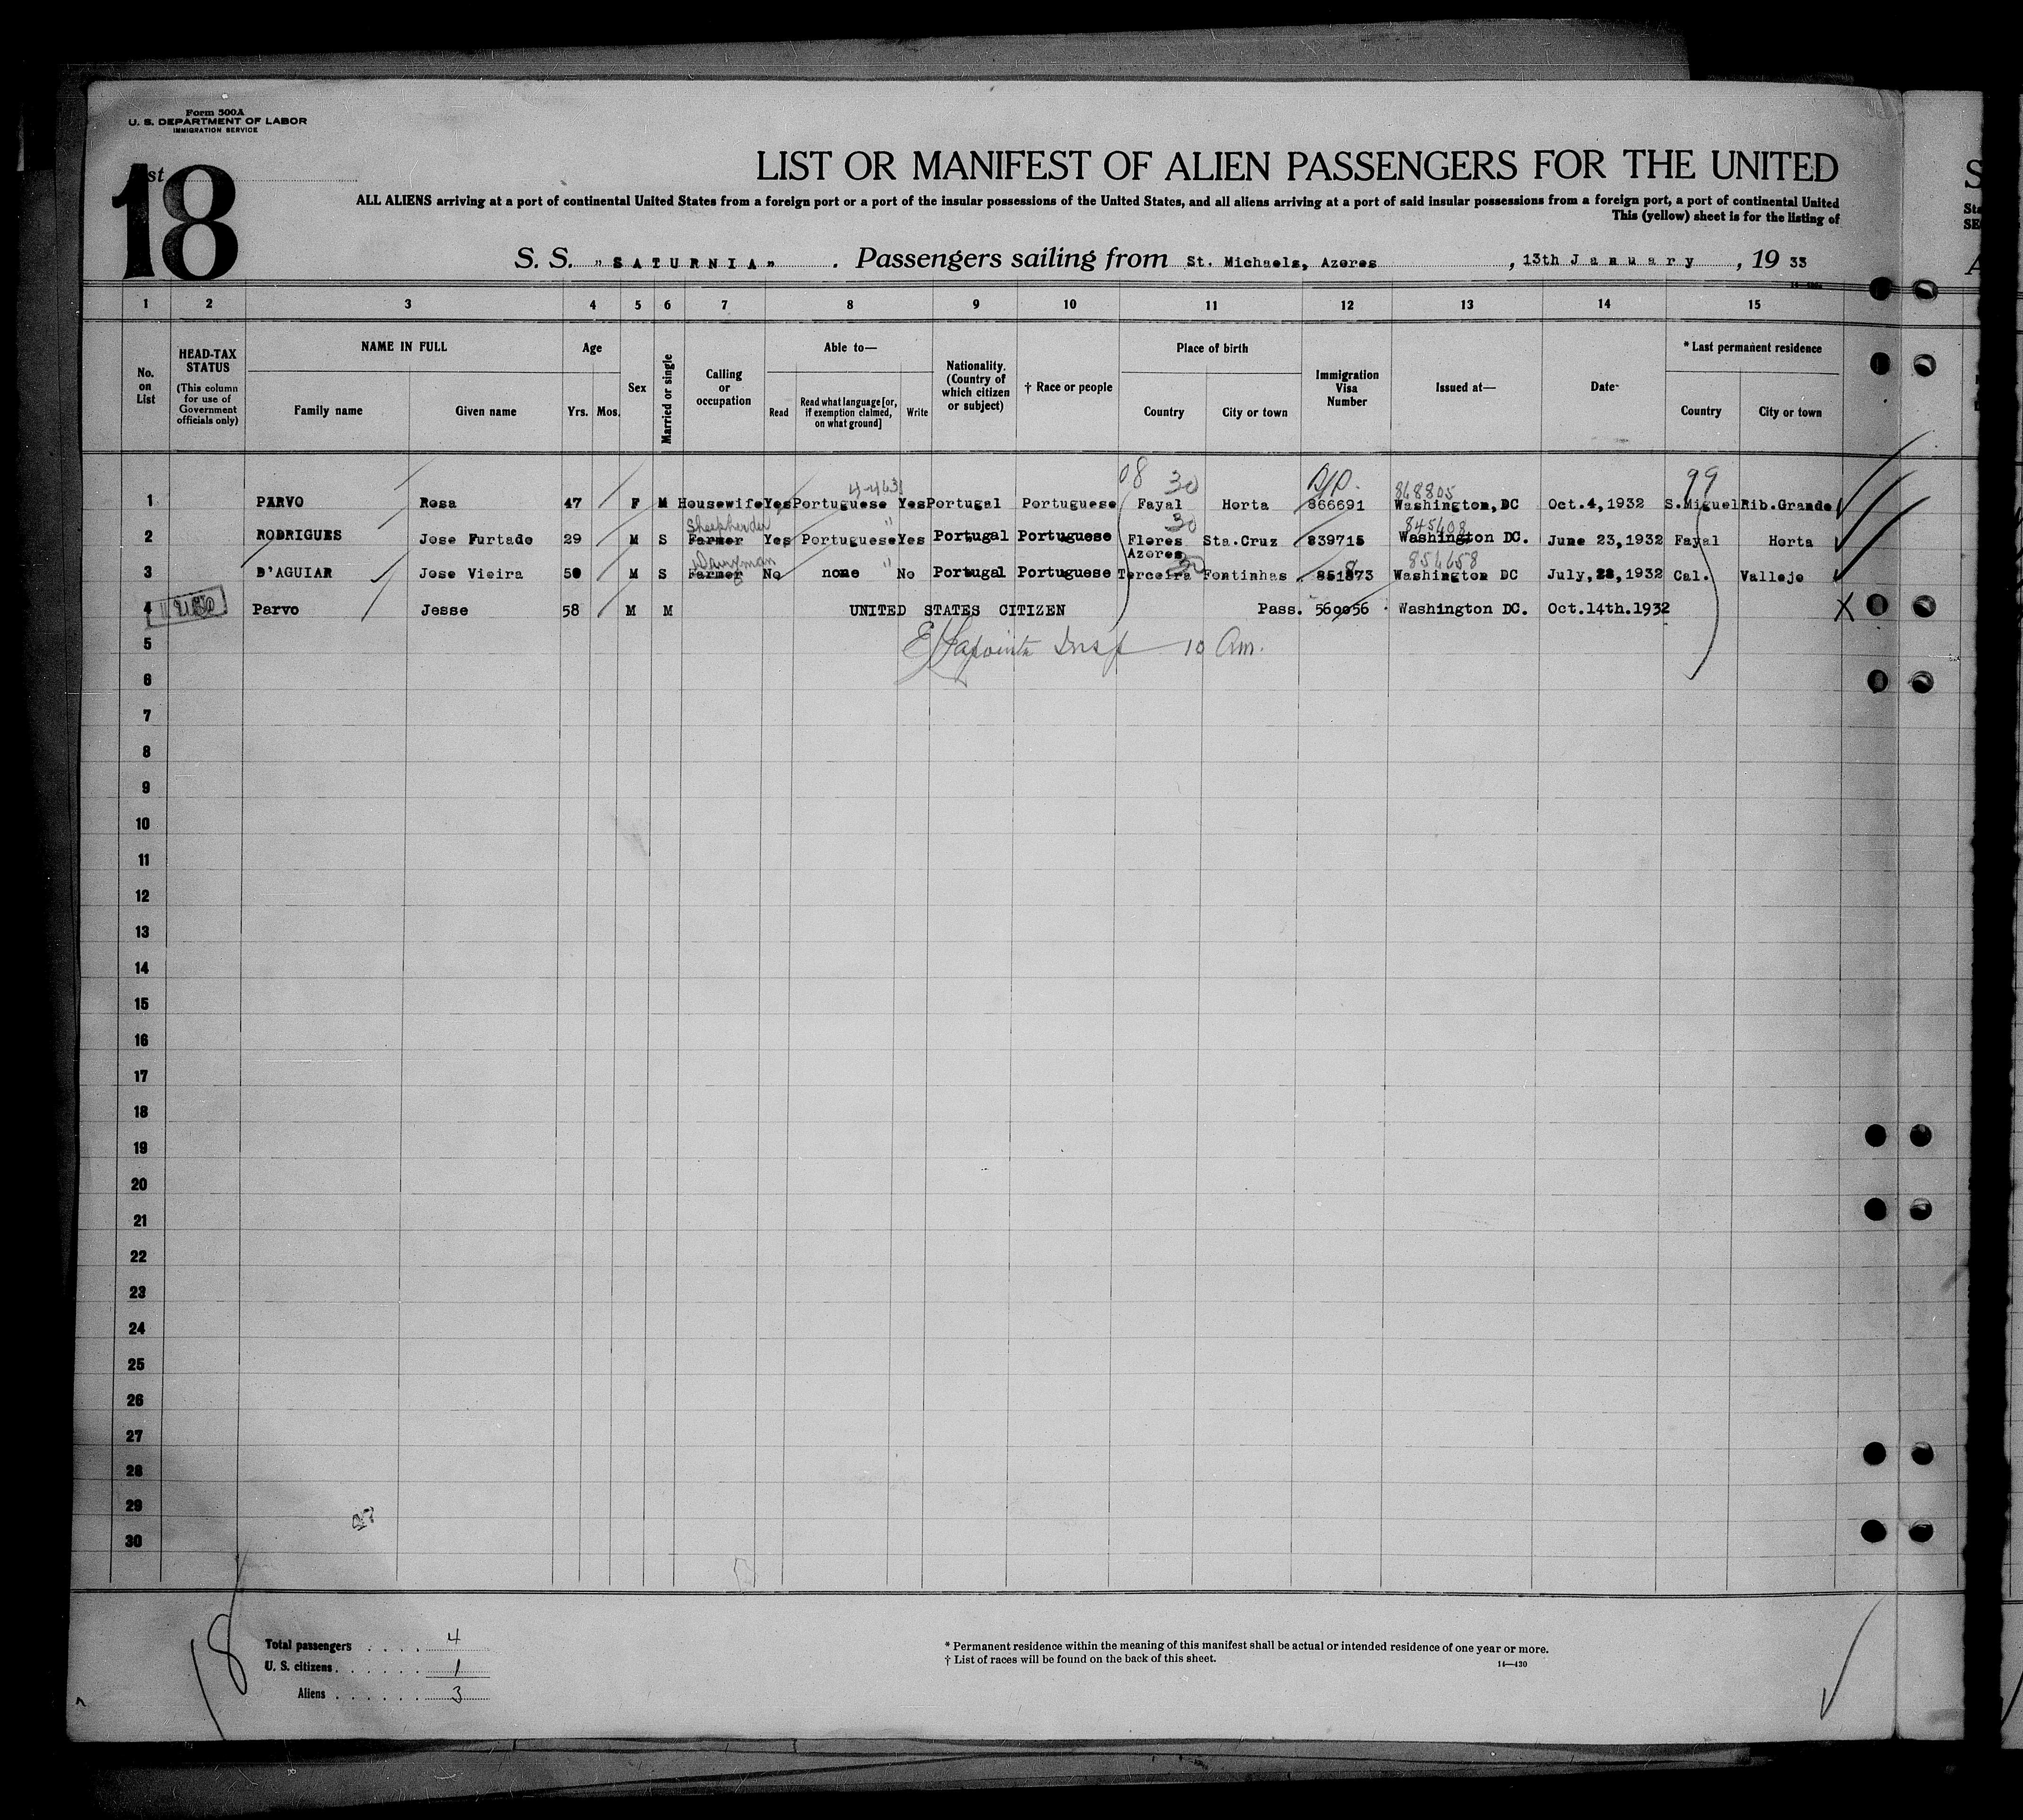 Form 500A
U. S. DEPARTMENT OF LABOR
IMMIGRATION SERVICE
18
LIST OR MANIFEST OF ALIEN PASSENGERS FOR THE UNITED
ALL ALIENS arriving at a port of continental United States from a foreign port or a port of the insular possessions of the United States, and all aliens arriving at a port of said insular possessions from a foreign port, a port of continental United
This (yellow) sheet is for the listing of
S. S. "SATURNIA". Passengers sailing from St. Michaels, Azores, 13th January, 19 33
1 2 3 4 5 6 7 8 9 10 11 12 13 14 15
No. on List
HEAD-TAX STATUS (This column for use of Government officials only)
NAME IN FULL
Family name Given name
Age
Yrs. Mos.
Sex
Married or single
Calling or occupation
Able to—
Read Read what language [or, if exemption claimed, on what ground] Write
Nationality. (Country of which citizen or subject)
† Race or people
Place of birth
Country City or town
Immigration Visa Number
Issued at—
Date
* Last permanent residence
Country City or town
08 30 99
4-4631 868805
1 PARVO Rosa 47 F M Housewife Yes Portuguese Yes Portugal Portuguese Fayal Horta 866691 Washington, DC Oct.4,1932 S.Miguel Rib.Grande
Sheepherder " 30 845408
2 RODRIGUES Jose Furtado 29 M S Farmer Yes Portuguese Yes Portugal Portuguese Flores Sta.Cruz 839715 Washington DC. June 23,1932 Fayal Horta
Dairyman " Azores 30 854658
3 D'AGUIAR Jose Vieira 50 M S Farmer No none No Portugal Portuguese Terceira Fontinhas 851873 Washington DC July, 28, 1932 Cal. Vallejo
4 Parvo Jesse 58 M M UNITED STATES CITIZEN Pass. 560056 Washington DC. Oct.14th.1932 X
5 Insp 10 Am.
6
7
8
9
10
11
12
13
14
15
16
17
18
19
20
21
22
23
24
25
26
27
28
29
30
18
Total passengers . . . . 4
U. S. citizens . . . . . . 1
Aliens . . . . . . 3
* Permanent residence within the meaning of this manifest shall be actual or intended residence of one year or more.
† List of races will be found on the back of this sheet.
14—430